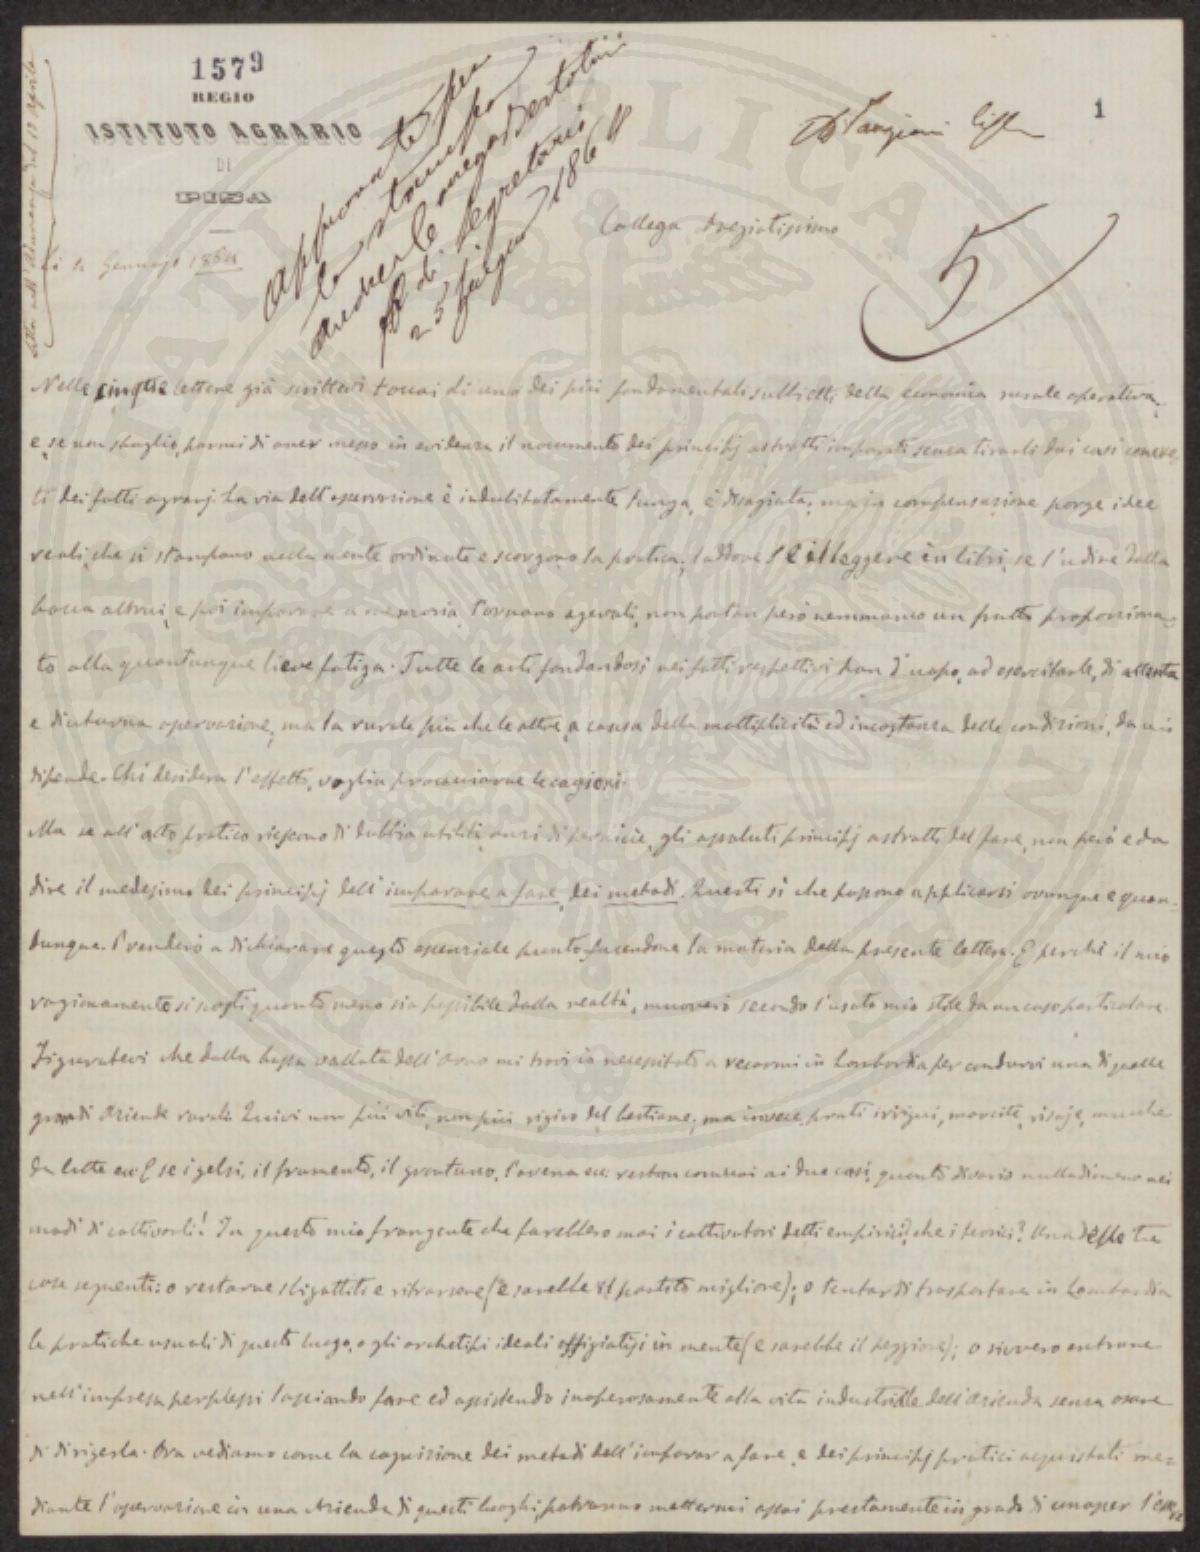 1579
REGIO
ISTITUTO AGRARIO
DI
PISA
1
Gennajo 1864
letta nell'Adunanza del 17 Aprile
approvata per
la stampa
Segretario
25 Giugno 1864
Collega Pregiatissimo
5
Nelle cinque lettere già scrittevi toccai di uno dei più fondamentali subbietti della economia rurale operativa,
e, se non sbaglio, parmi di aver messo in evidenza il nocumento dei principj astratti imparati senza tirarli dai casi concre-
ti dei fatti agrarj. La via dell'osservazione è indubitatamente lunga, è disagiata; ma in compensazione porge idee
reali, che si stampano nella mente ordinate e scorgono la pratica; laddove il leggere in libri, se l'udire dalla
bocca altrui, e poi imparare a memoria, tornano agevoli, non portan però nemmanco un frutto proporziona-
to alla quantunque lieve fatiga. Tutte le arti fondandosi nei fatti respettivi han d'uopo, ad esercitarle, di attenta
e diuturna osservazione, ma la rurale più che le altre, a causa della moltiplicità ed incostanza delle condizioni, da cui
dipende. Chi desidera l'effetto, voglia procacciarne le cagioni.
Ma se all'atto pratico riescono di dubbia utilità, anzi di pernicie, gli assoluti principj astratti del fare, non però è da
dire il medesimo dei principj dell'imparare a fare, dei metodi. Questi sì che possono applicarsi ovunque e quan-
dunque. Prenderò a dichiarare questo essenziale punto facendone la materia della presente lettera. E perchè il mio
ragionamento si scosti quanto meno sia possibile dalla realtà, muoverò secondo l'usato mio stile da un caso particolare.
Figuratevi che dalla bassa vallata dell'Arno mi trovi io necessitato a recarmi in Lombardia per condurvi una di quelle
grandi aziende rurali. Quivi non più viti, non più rigiro del bestiame; ma invece prati irrigui, marcite, risaje, mucche
da latte ec. E se i gelsi, il frumento, il granturco, l'avena ec. restan comuni ai due casi, quanto divario nulladimeno nei
modi di coltivarli! In questo mio frangente che farebbero mai i coltivatori detti empirici, che i teorici? Una delle tre
cose seguenti: o restarne sbigottiti e ritrarsene (e sarebbe il partito migliore); o tentar di trasportare in Lombardia
le pratiche usuali di questi luoghi, o gli archetipi ideali effigiatisi in mente (e sarebbe il peggiore); o sivvero entrare
nell'impresa perplessi lasciando fare ed assistendo inoperosamente alla vita industriale dell'azienda senza osare
di dirigerla. Ora vediamo come la cognizione dei metodi dell'imparar a fare, e dei principj pratici acquistati me-
diante l'osservazione in una Azienda di questi luoghi, potranno mettermi assai prestamente in grado di